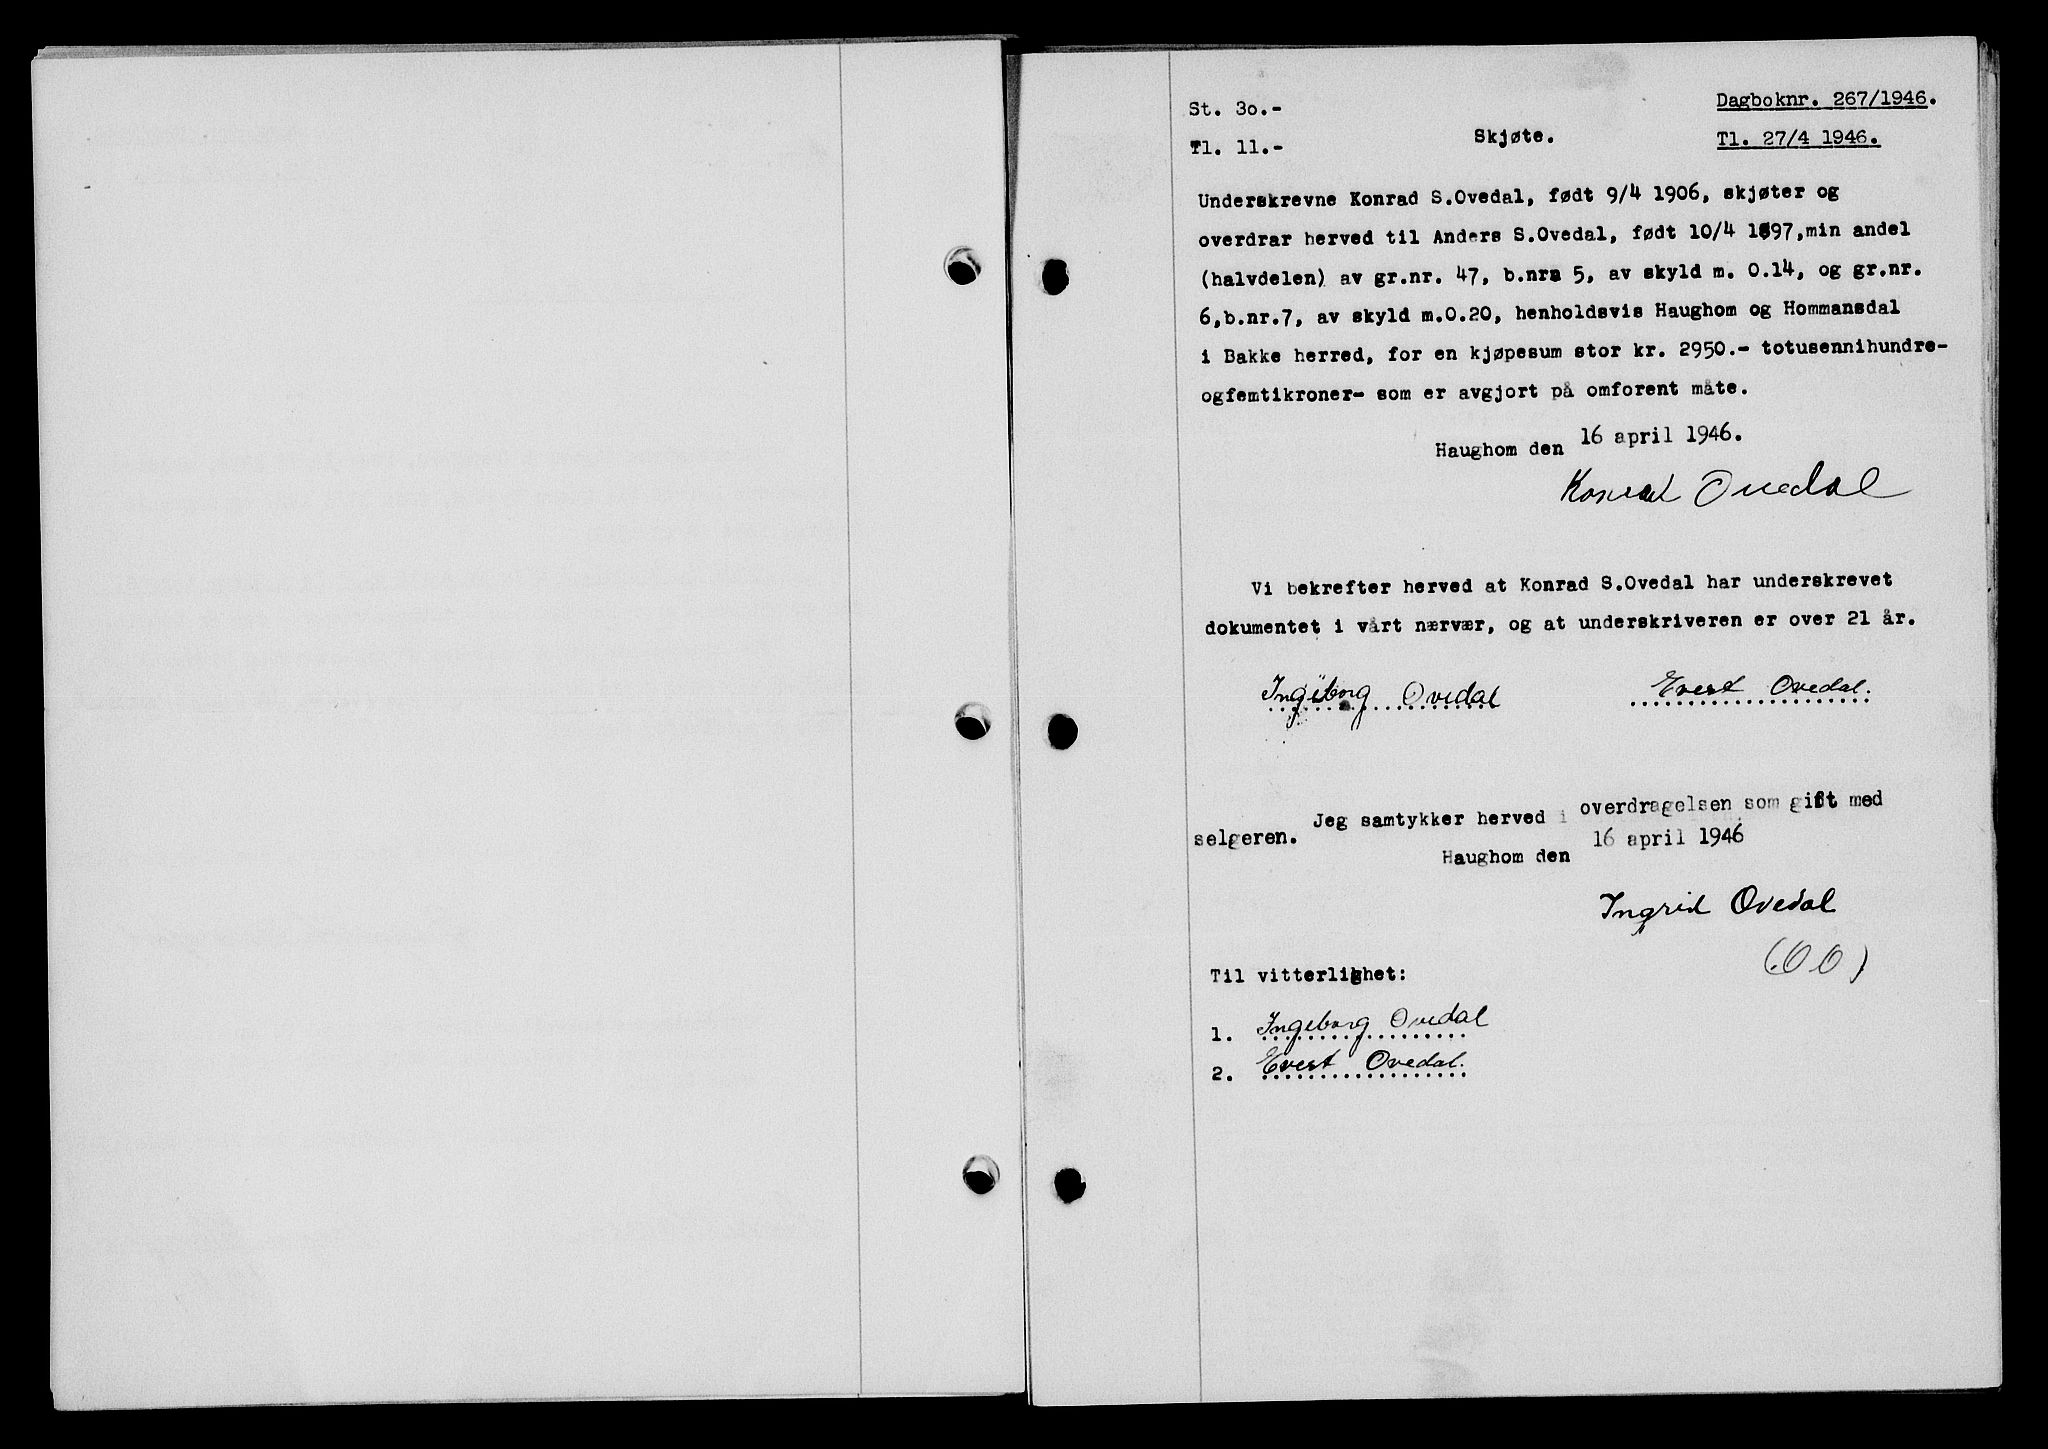 St. 3o.-
Tl. 11.-
Skjøte.
Dagboknr. 267/1946.
Tl. 27/4 1946.
Underskrevne Konrad S.Ovedal, født 9/4 1906, skjøter og
overdrar herved til Anders S.Ovedal, født 10/4 1897,min andel
(halvdelen) av gr.nr. 47, b.nr. 5, av skyld m. 0.14, og gr.nr.
6,b.nr.7, av skyld m.0.20, henholdsvis Haughom og Hommansdal
i Bakke herred, for en kjøpesum stor kr. 2950.- totusennihundre-
ogfemtikroner- som er avgjort på omforent måte.
Haughom den 16 april 1946.
Konrad Ovedal
Vi bekrefter herved at Konrad S.Ovedal har underskrevet
dokumentet i vårt nærvær, og at underskriveren er over 21 år.
Ingeborg Ovedal Evert Ovedal.
Jeg samtykker herved i overdragelsen som gift med
selgeren.
Haughom den 16 april 1946
Ingrid Ovedal
Til vitterlighet:
1. Ingeborg Ovedal
2. Evert Ovedal.